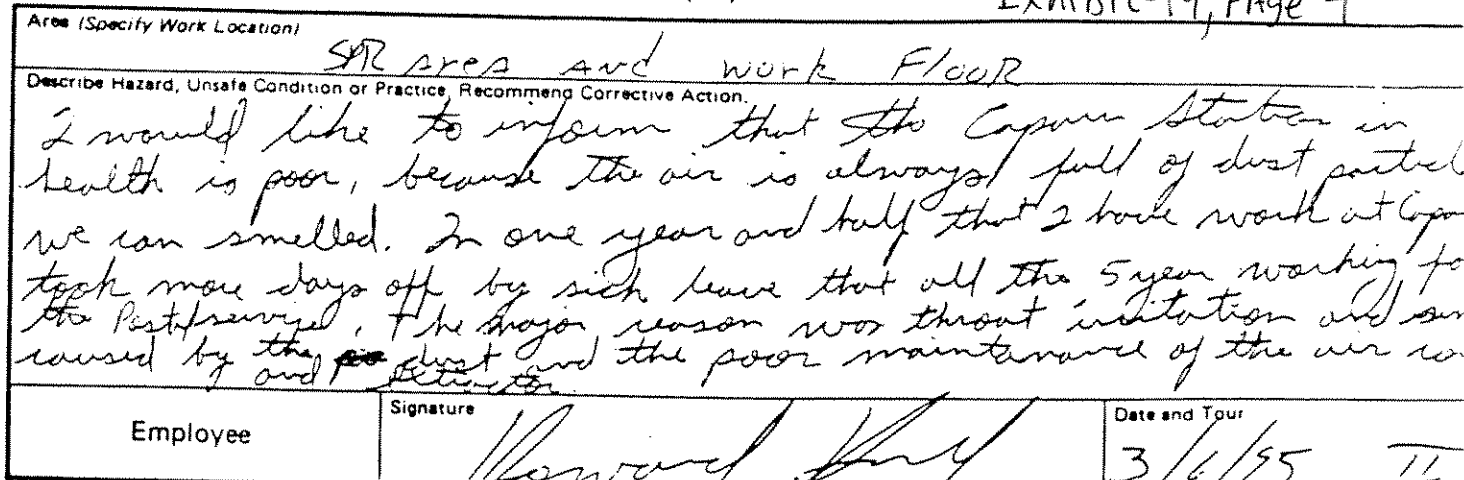 Exhibit-19, Page 9
Area (Specify Work Location)
SPR area and work Floor
Describe Hazard, Unsafe Condition or Practice, Recommend Corrective Action.
I would like to inform that the Station in
health is poor, because the air is always full of dust
we can smelled. In one year and half that I have work at
took more days off by sick leave that all the 5 year working
the Postal service, the major reason was throat irritation and
caused by the dust and the poor maintenance of the air
and
Employee
Signature
Howard
Date and Tour
3/6/95 II